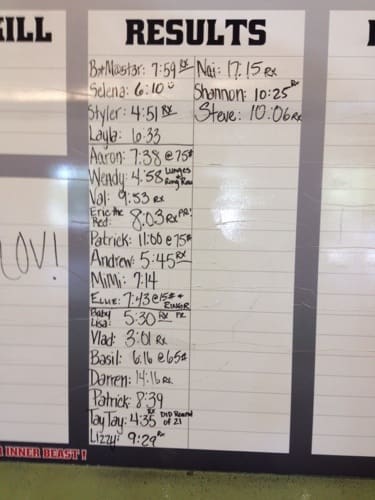 KILL
RESULTS
Selena: 6:10
Styler: 4:51 RX
Layla: 6:33
Aaron: 7:38 @ 75#
Wendy: 4:58 Lunges
Ring Row
Val: 9:53 RX
Eric the
Red: 8:03 RX PR!
Patrick: 11:00 @ 75#
Andrew: 5:45 RX
MiMi: 7:14
Ellie: 7:43 @ 15# +
RINGR
Baby
Lisa: 5:30 RX PR
Vlad: 3:01 RX
Basil: 6:16 @ 65#
Darren: 14:16 RX
Patrick: 8:39
Tay Tay: 4:35 RX DID ROUND
of 21
Lizzy: 9:29 RX
Nai: 17:15 RX
Shannon: 10:25 RX
Steve: 10:06 RX
LOV!
INNER BEAST!